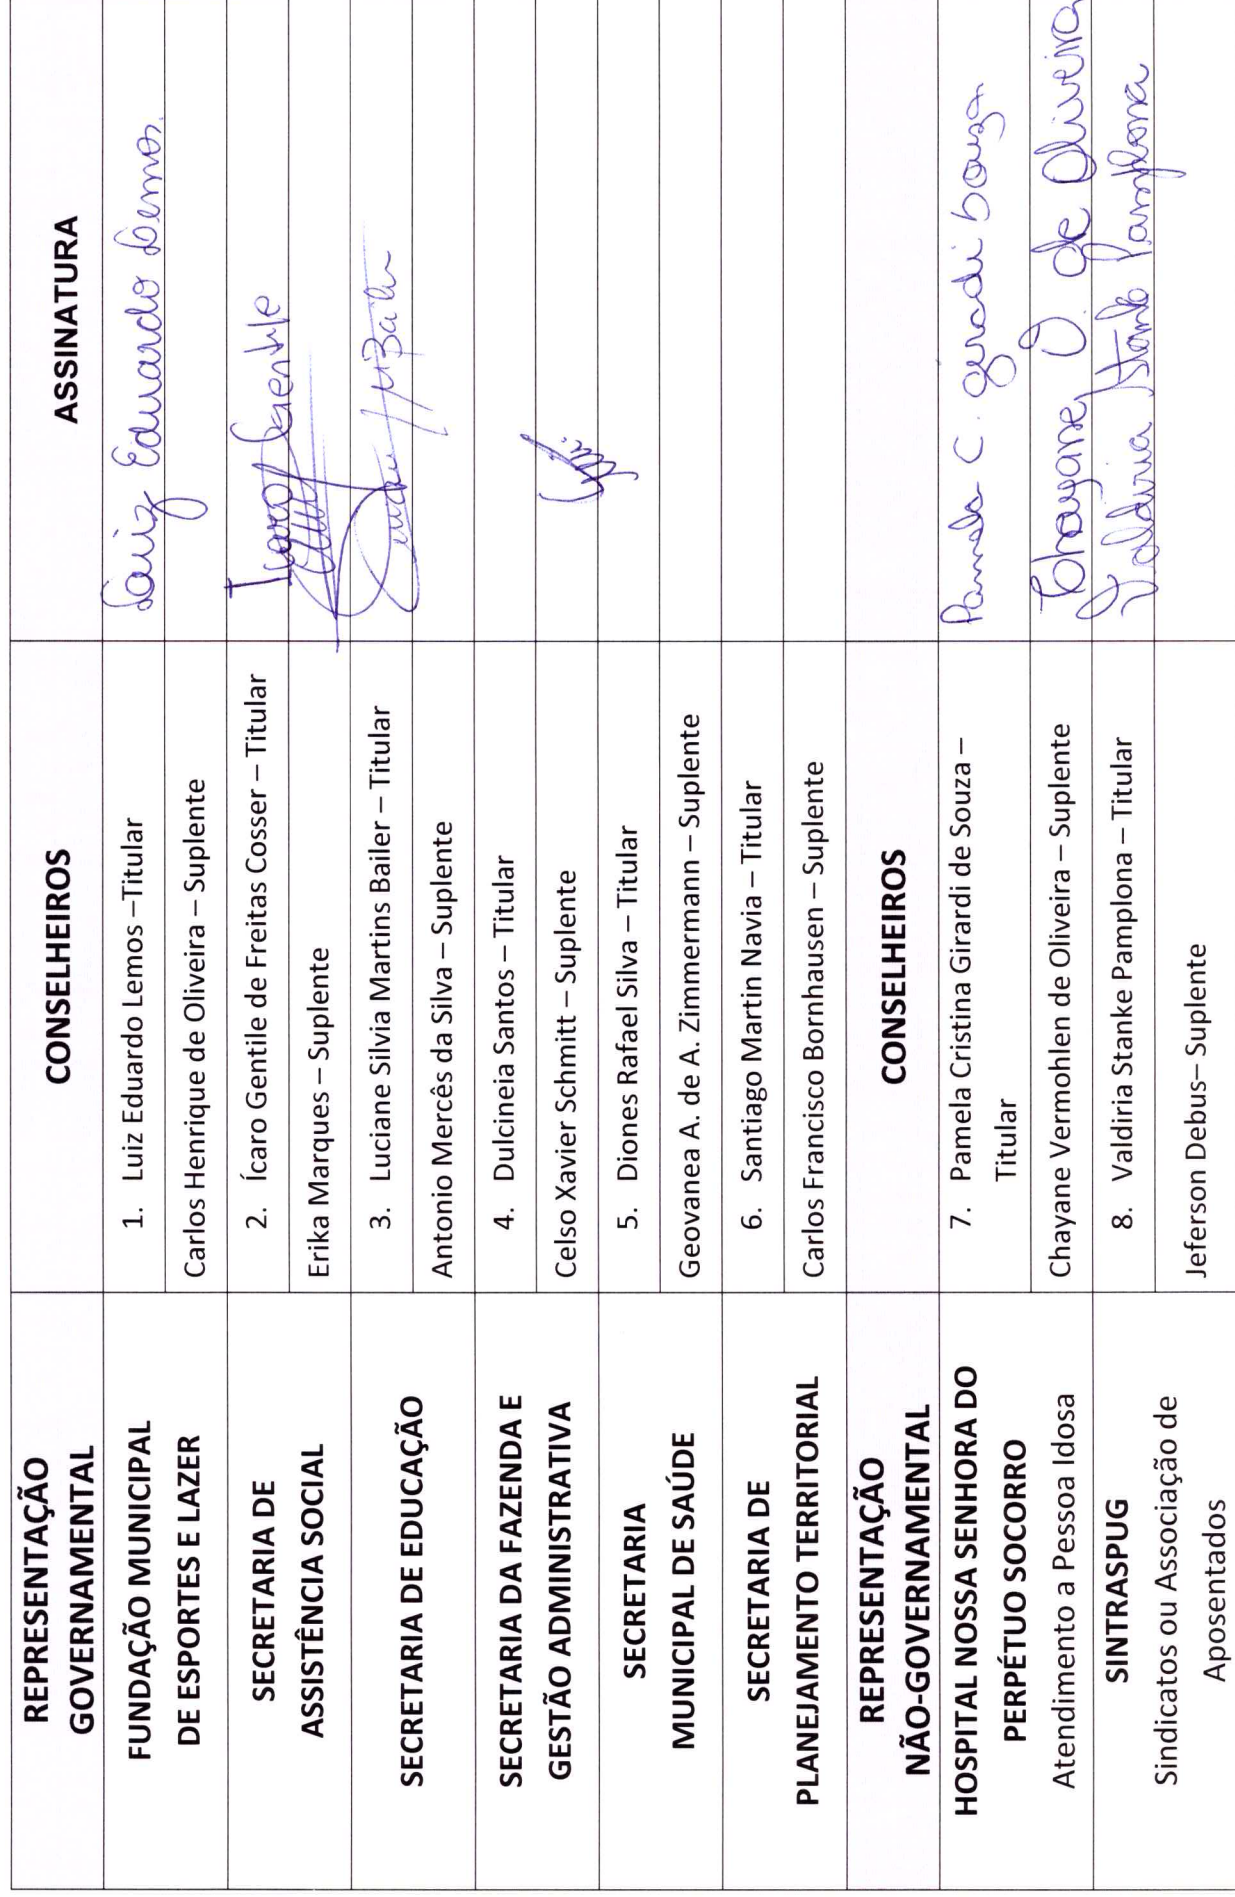 REPRESENTAÇÃO
GOVERNAMENTAL
CONSELHEIROS
ASSINATURA
FUNDAÇÃO MUNICIPAL
DE ESPORTES E LAZER
1. Luiz Eduardo Lemos –Titular
Luiz Eduardo Lemos
Carlos Henrique de Oliveira – Suplente
SECRETARIA DE
ASSISTÊNCIA SOCIAL
2. Ícaro Gentile de Freitas Cosser – Titular
Icaro Gentile
Erika Marques – Suplente
SECRETARIA DE EDUCAÇÃO
3. Luciane Silvia Martins Bailer – Titular
Antonio Mercês da Silva – Suplente
SECRETARIA DA FAZENDA E
GESTÃO ADMINISTRATIVA
4. Dulcineia Santos – Titular
Celso Xavier Schmitt – Suplente
SECRETARIA
MUNICIPAL DE SAÚDE
5. Diones Rafael Silva – Titular
Geovanea A. de A. Zimmermann – Suplente
SECRETARIA DE
PLANEJAMENTO TERRITORIAL
6. Santiago Martin Navia – Titular
Carlos Francisco Bornhausen – Suplente
REPRESENTAÇÃO
NÃO-GOVERNAMENTAL
CONSELHEIROS
HOSPITAL NOSSA SENHORA DO
PERPÉTUO SOCORRO
Atendimento a Pessoa Idosa
7. Pamela Cristina Girardi de Souza –
Titular
Pamela C. girardi Souza
Chayane Vermohlen de Oliveira – Suplente
Chayane V. de Oliveira
SINTRASPUG
Sindicatos ou Associação de
Aposentados
8. Valdiria Stanke Pamplona – Titular
Valdiria Stanke Pamplona
Jeferson Debus– Suplente